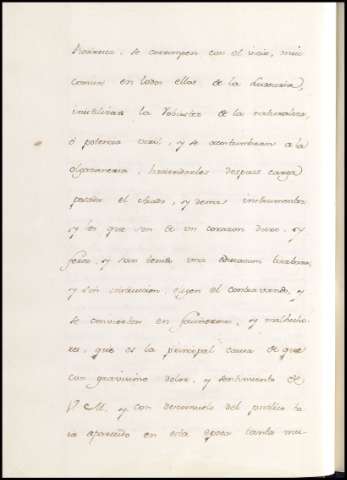 se corrompen con el vicio, mui
comun en todos ellos de la Luxuria,
inutilizan la robustez de la naturaleza,
ò potencia viril, y se acostumbran a la
olgazaneria, haciendoles despues carga
pesada el arado, y demas instrumentos
y los que son de un corazon duro, y
feroz, y han tenido una educacion
y sin sugecion, siguen el contravando, y
se convierten en y malhecho
res, que es la principal causa de que
con gravisimo dolor, y sentimiento de
V. M. y con desconsuelo del publico ha
ia aparecido en esta epoca tanta mu